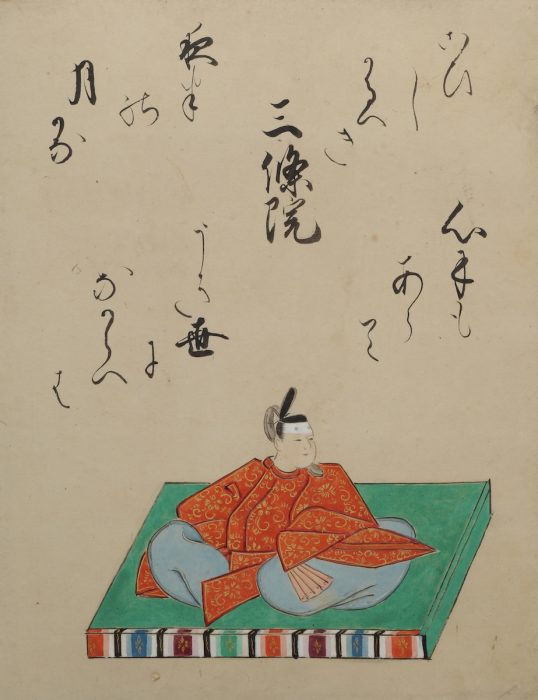 三條院
心にも
あらて
うき世
に
なからへ
は
こひ
し
かるへ
き
夜半
の
月
かな